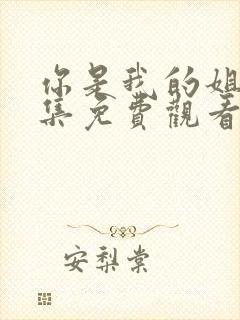 你是我的姐
集免費觀看
安梨棠